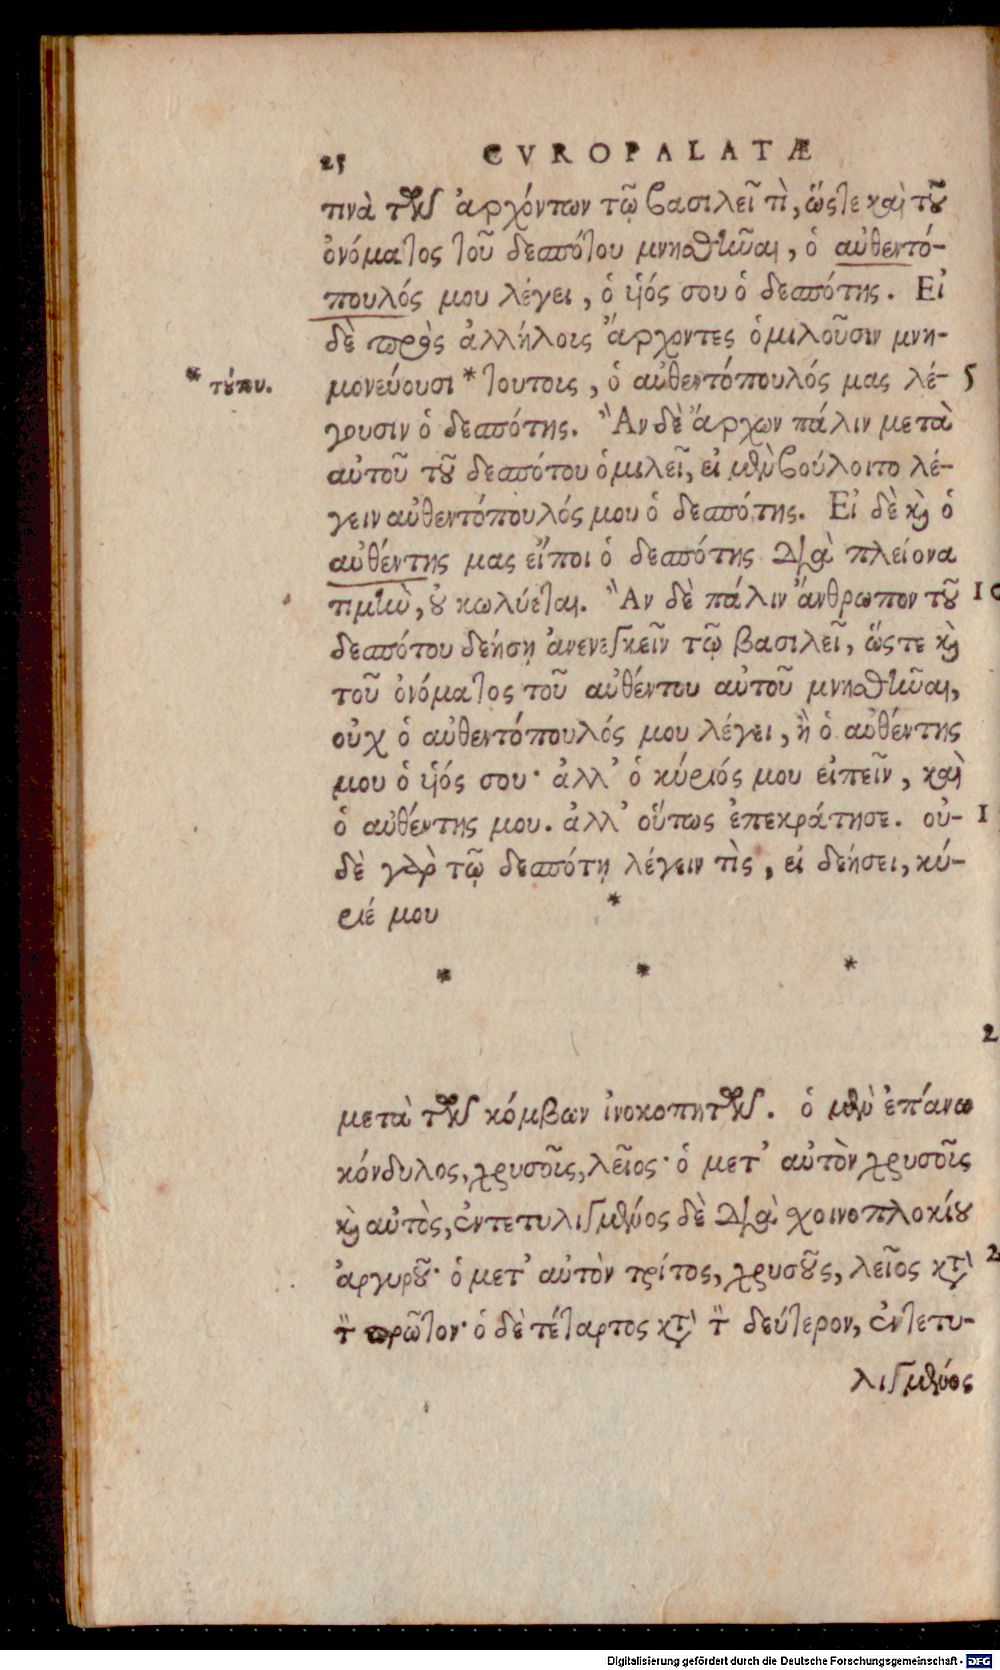 25 CVROPALATÆ
τινὰ τῶν ἀρχόντων τῷ βασιλεῖ τὶ, ὥςτε καὶ τοῦ
ὀνόματος τοῦ δεσπότου μνησθῆναι, ὁ αὐθεντό-
πουλός μου λέγει, ὁ ὑιός σου ὁ δεσπότης. Εἰ
δὲ πρὸς ἀλλήλοις ἄρχοντες ὁμιλοῦσιν μνη-
* τούτου. μονεύουσι * τουτοις, ὁ αὐθεντόπουλός μας λέ- 5
γουσιν ὁ δεσπότης. Ἂν δὲ ἄρχων πάλιν μετὰ
αὐτοῦ τοῦ δεσπότου ὁμιλεῖ, εἰ μὲν βούλοιτο λέ-
γειν αὐθεντόπουλός μου ὁ δεσπότης. Εἰ δὲ καὶ ὁ
αὐθέντης μας εἴποι ὁ δεσπότης διὰ πλείονα
τιμὴν, οὐ κωλύεται. Ἂν δὲ πάλιν ἄνθρωπον τοῦ 10
δεσπότου δεήσῃ ἀνενεγκεῖν τῷ βασιλεῖ, ὥςτε καὶ
τοῦ ὀνόματος τοῦ αὐθέντου αὐτοῦ μνησθῆναι,
οὐχ ὁ αὐθεντόπουλός μου λέγει, ἢ ὁ αὐθέντης
μου ὁ ὑιός σου· ἀλλ’ ὁ κύριός μου εἰπεῖν, καὶ
ὁ αὐθέντης μου. ἀλλ’ οὕπως ἐπεκράτησε. οὐ- 1
δὲ γὰρ τῷ δεσπότῃ λέγειν τὶς, εἰ δεήσει, κύ-
ριέ μου *
* * *
2
μετὰ τῶν κόμβων ἰνοκοπητῶν. ὁ μὲν ἐπάνω
κόνδυλος, χρυσοῖς, λεῖος· ὁ μετ’ αὐτὸν χρυσοῖς
καὶ αὐτὸς, ἐντετυλιγμένος δὲ διὰ χοινοπλοκίου
ἀργυροῦ· ὁ μετ’ αὐτὸν τρίτος, χρυσοῦς, λεῖος κτ̀ 2
τὸν πρῶτον· ὁ δὲ τέταρτος κτ̀ τὸν δεύτερον, ἐντετυ-
λιγμένος
Digitalisierung gefördert durch die Deutsche Forschungsgemeinschaft - DFG